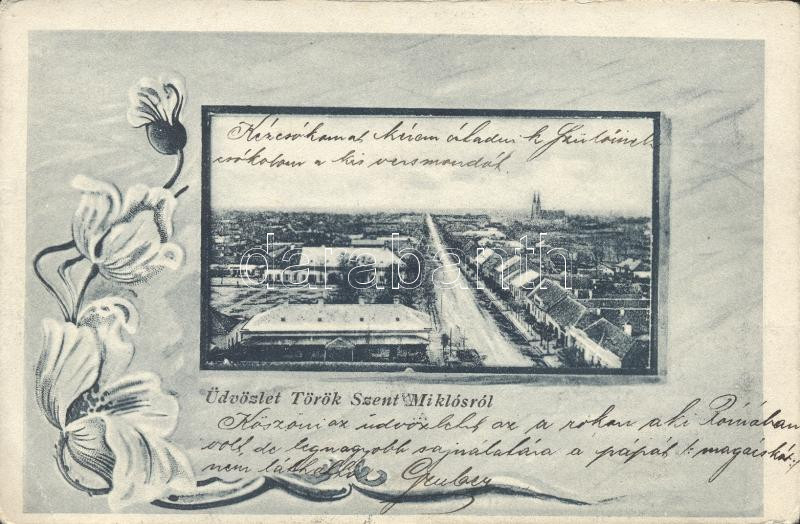 Kézcsókomat kérem átadni k. Szüleinek
csókolom a kis versmondót.
darabanth
Üdvözlet Török Szent Miklósról
Köszöni az üdvözletet az a rokon aki Rómában
volt, de legnagyobb sajnálatára a pápát
nem láthatta. Gruber